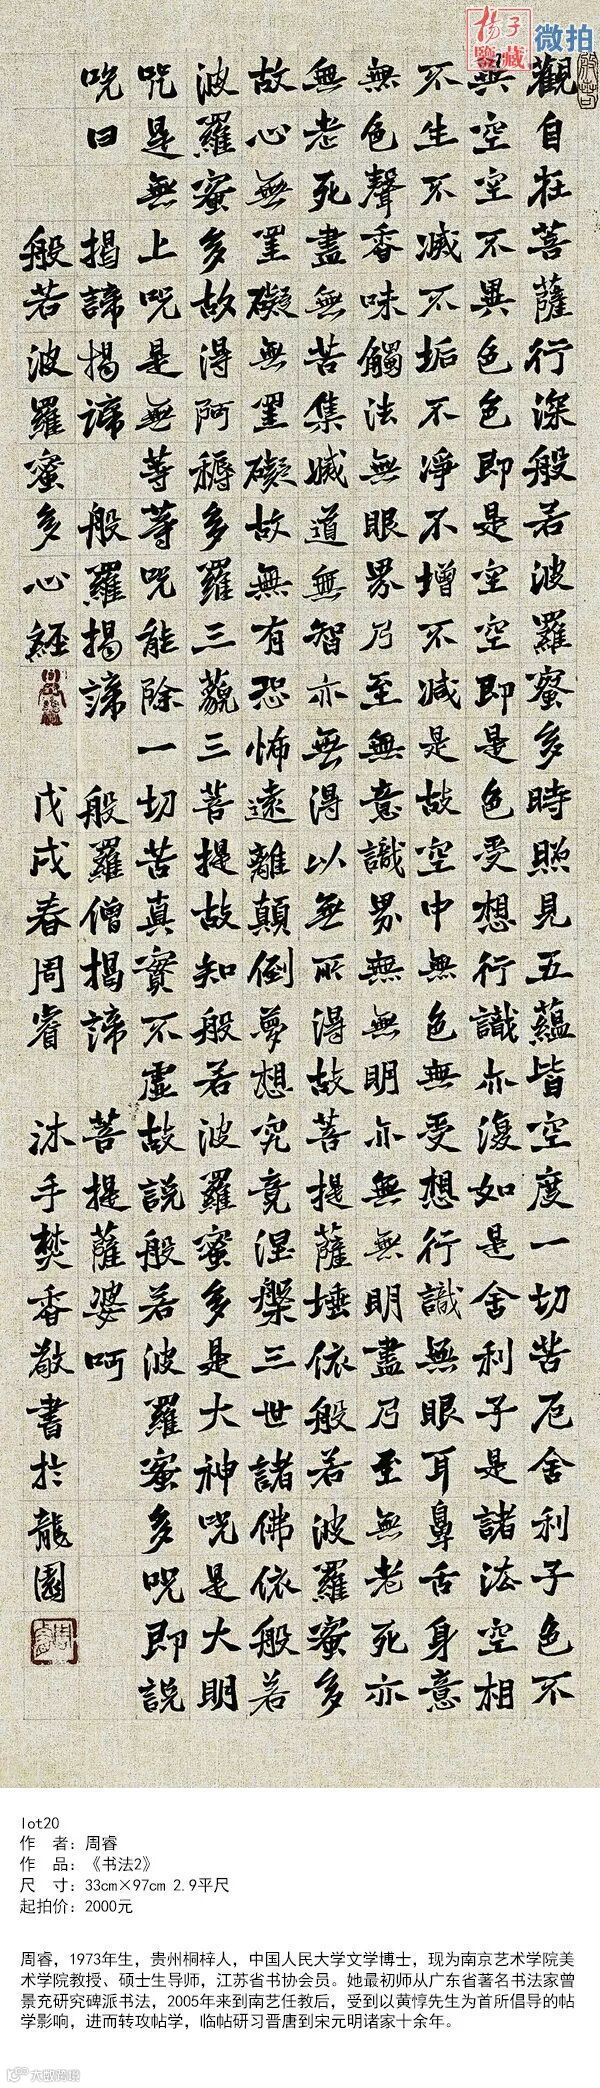 揚子
鑒藏
微拍
般若
觀自在菩薩行深般若波羅蜜多時照見五蘊皆空度一切苦厄舍利子色不
空空不異色色即是空空即是色受想行識亦復如是舍利子是諸法空相
不生不滅不垢不淨不增不減是故空中無色無受想行識無眼耳鼻舌身意
無色聲香味觸法無眼界乃至無意識界無無明亦無無明盡乃至無老死亦
無老死盡無苦集滅道無智亦無得以無所得故菩提薩埵依般若波羅蜜多
故心無罣礙無罣礙故無有恐怖遠離顛倒夢想究竟涅槃三世諸佛依般若
波羅蜜多故得阿耨多羅三藐三菩提故知般若波羅蜜多是大神咒是大明
咒是無上咒是無等等咒能除一切苦真實不虛故說般若波羅蜜多咒即說
咒曰 揭諦揭諦 般羅揭諦 般羅僧揭諦 菩提薩婆呵
般若波羅蜜多心經 戊戌春周睿 沐手焚香敬書於龍園
lot20
作 者：周睿
作 品：《书法2》
尺 寸：33cm×97cm 2.9平尺
起拍价：2000元
周睿，1973年生，贵州桐梓人，中国人民大学文学博士，现为南京艺术学院美
术学院教授、硕士生导师，江苏省书协会员。她最初师从广东省著名书法家曾
景充研究碑派书法，2005年来到南艺任教后，受到以黄惇先生为首所倡导的帖
学影响，进而转攻帖学，临帖研习晋唐到宋元明诸家十余年。